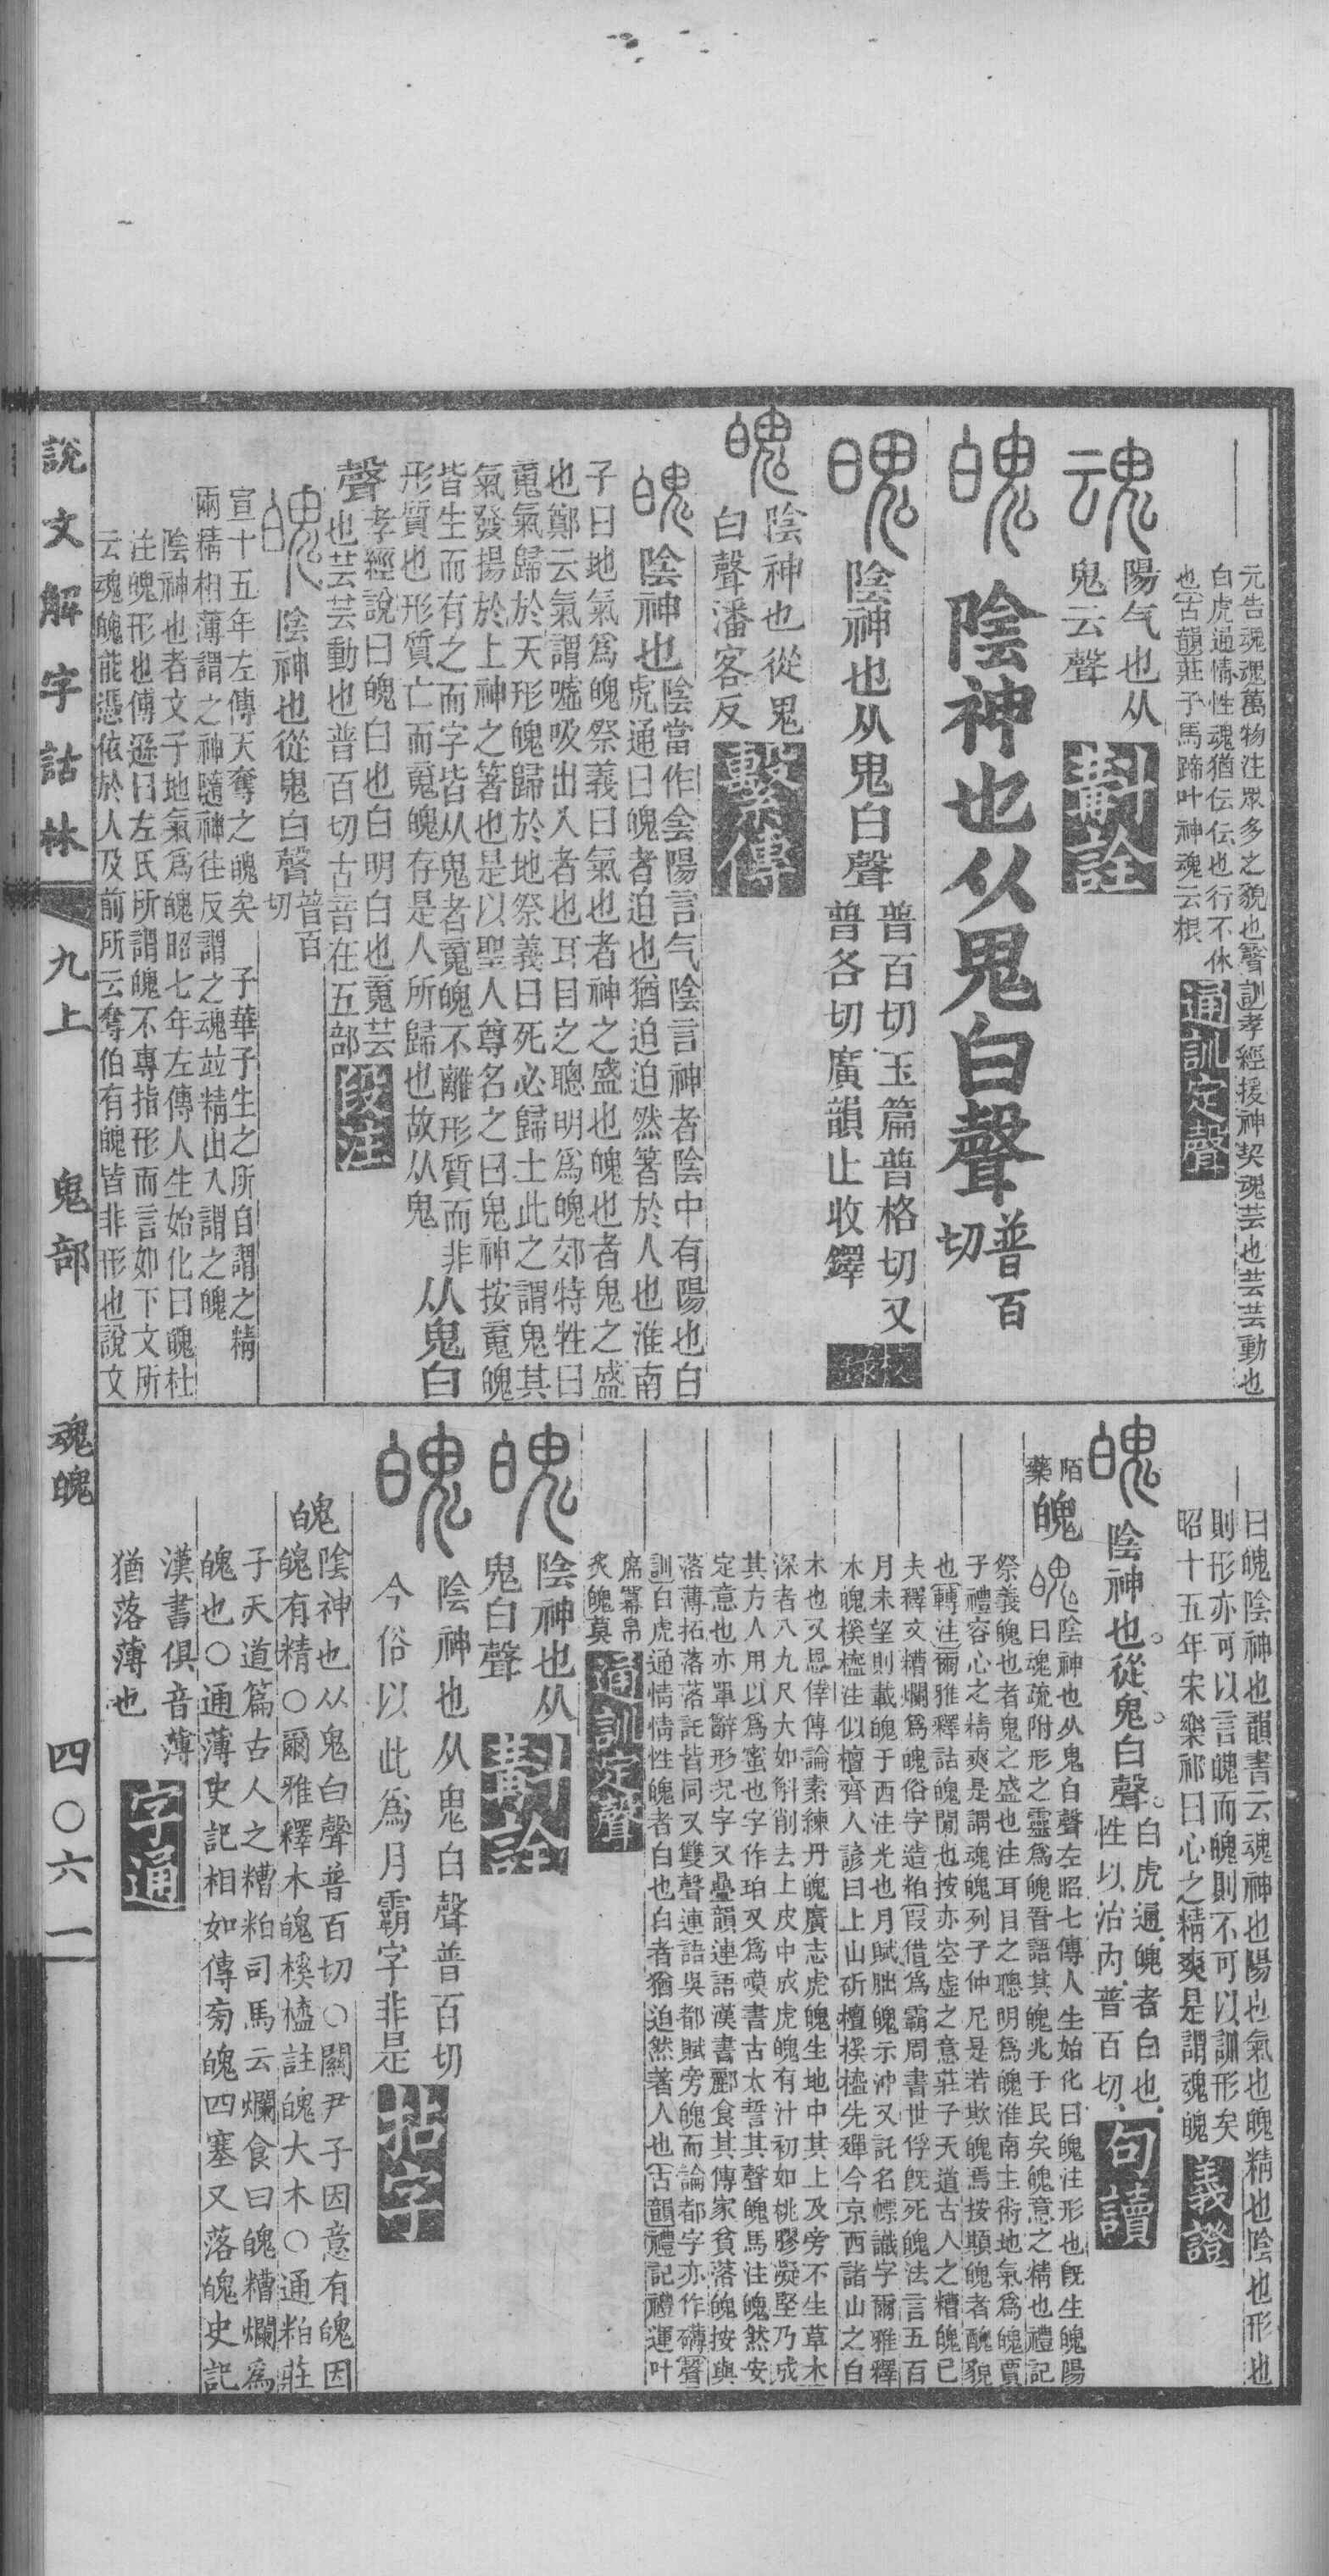 元告魂魂萬物注眾多之貌也聲訓孝經援神契魂芸也芸芸動也
白虎通情性魂猶伝伝也行不休
也古韻莊子馬蹄叶神魂云根
通訓定聲
魂
陽气也从
鬼云聲
斠詮
魄
陰神也从鬼白聲
普百
切
魄
陰神也从鬼白聲
普百切玉篇普格切又
普各切廣韻止收鐸
校錄
魄
陰神也從鬼
白聲潘客反
繫傳
魄
陰神也
陰當作侌陽言气陰言神者陰中有陽也白
虎通曰魄者迫也猶迫迫然箸於人也淮南
子曰地氣爲魄祭義曰氣也者神之盛也魄也者鬼之盛
也鄭云氣謂噓吸出入者也耳目之聰明爲魄郊特牲曰
䰟氣歸於天形魄歸於地祭義曰死必歸土此之謂鬼其
氣發揚於上神之箸也是以聖人尊名之曰鬼神按䰟魄
皆生而有之而字皆从鬼者䰟魄不離形質而非
形質也形質亡而䰟魄存是人所歸也故从鬼
从鬼白
聲
孝經說曰魄白也白明白也䰟芸
也芸芸動也普百切古音在五部
段注
魄
陰神也從鬼白聲
普百
切
宣十五年左傳天奪之魄矣
子華子生之所自謂之精
兩精相薄謂之神隨神往反謂之魂竝精出入謂之魄
陰神也者文子地氣爲魄昭七年左傳人生始化曰魄杜
注魄形也傳遜曰左氏所謂魄不專指形而言如下文所
云魂魄能憑依於人及前所云奪伯有魄皆非形也說文
曰魄陰神也韻書云魂神也陽也氣也魄精也陰也形也
則形亦可以言魄而魄則不可以訓形矣
昭十五年宋樂祁曰心之精爽是謂魂魄
義證
魄
陰神也從鬼白聲
白虎通魄者白也
性以治内普百切
句讀
陌
藥
魄
魄
陰神也从鬼白聲左昭七傳人生始化曰魄注形也旣生魄陽
曰魂疏附形之靈爲魄晉語其魄兆于民矣魄意之精也禮記
祭義魄也者鬼之盛也注耳目之聰明爲魄淮南主術地氣爲魄賈
子禮容心之精爽是謂魂魄列子仲尼是若欺魄焉按顛魄者醜貌
也轉注爾雅釋詁魄閒也按亦空虛之意莊子天道古人之糟魄已
夫釋文糟爛爲魄俗字造粕假借爲霸周書世俘旣死魄法言五百
月未望則載魄于西注光也月賦朏魄示沖又託名幖識字爾雅釋
木魄榽橀注似檀齊人諺曰上山斫檀榽橀先殫今京西諸山之白
木也又思倖傳論素練丹魄廣志虎魄生地中其上及旁不生草木
深者八九尺大如斛削去上皮中成虎魄有汁初如桃膠凝堅乃成
其方人用以爲蜜也字作珀又爲嗼書古太誓其聲魄馬注魄然安
定意也亦單辭形況字又疊韻連語漢書酈食其傳家貧落魄按與
落薄拓落落託皆同又雙聲連語吳都賦旁魄而論都字亦作礴聲
訓白虎通情性魄者白也白者猶迫然著人也古韻禮記禮運叶
席冪帛
炙魄莫
通訓定聲
魄
陰神也从
鬼白聲
斠詮
魄
陰神也从鬼白聲普百切
今俗以此爲月霸字非是
拈字
魄
陰神也从鬼白聲普百切○關尹子因意有魄因
魄有精○爾雅釋木魄榽橀註魄大木○通粕莊
子天道篇古人之糟粕司馬云爛食曰魄糟爛爲
魄也○通薄史記相如傳旁魄四塞又落魄史記
漢書俱音薄
猶落薄也
字通
說文解字詁林
九上
鬼部
魂魄
四〇六一